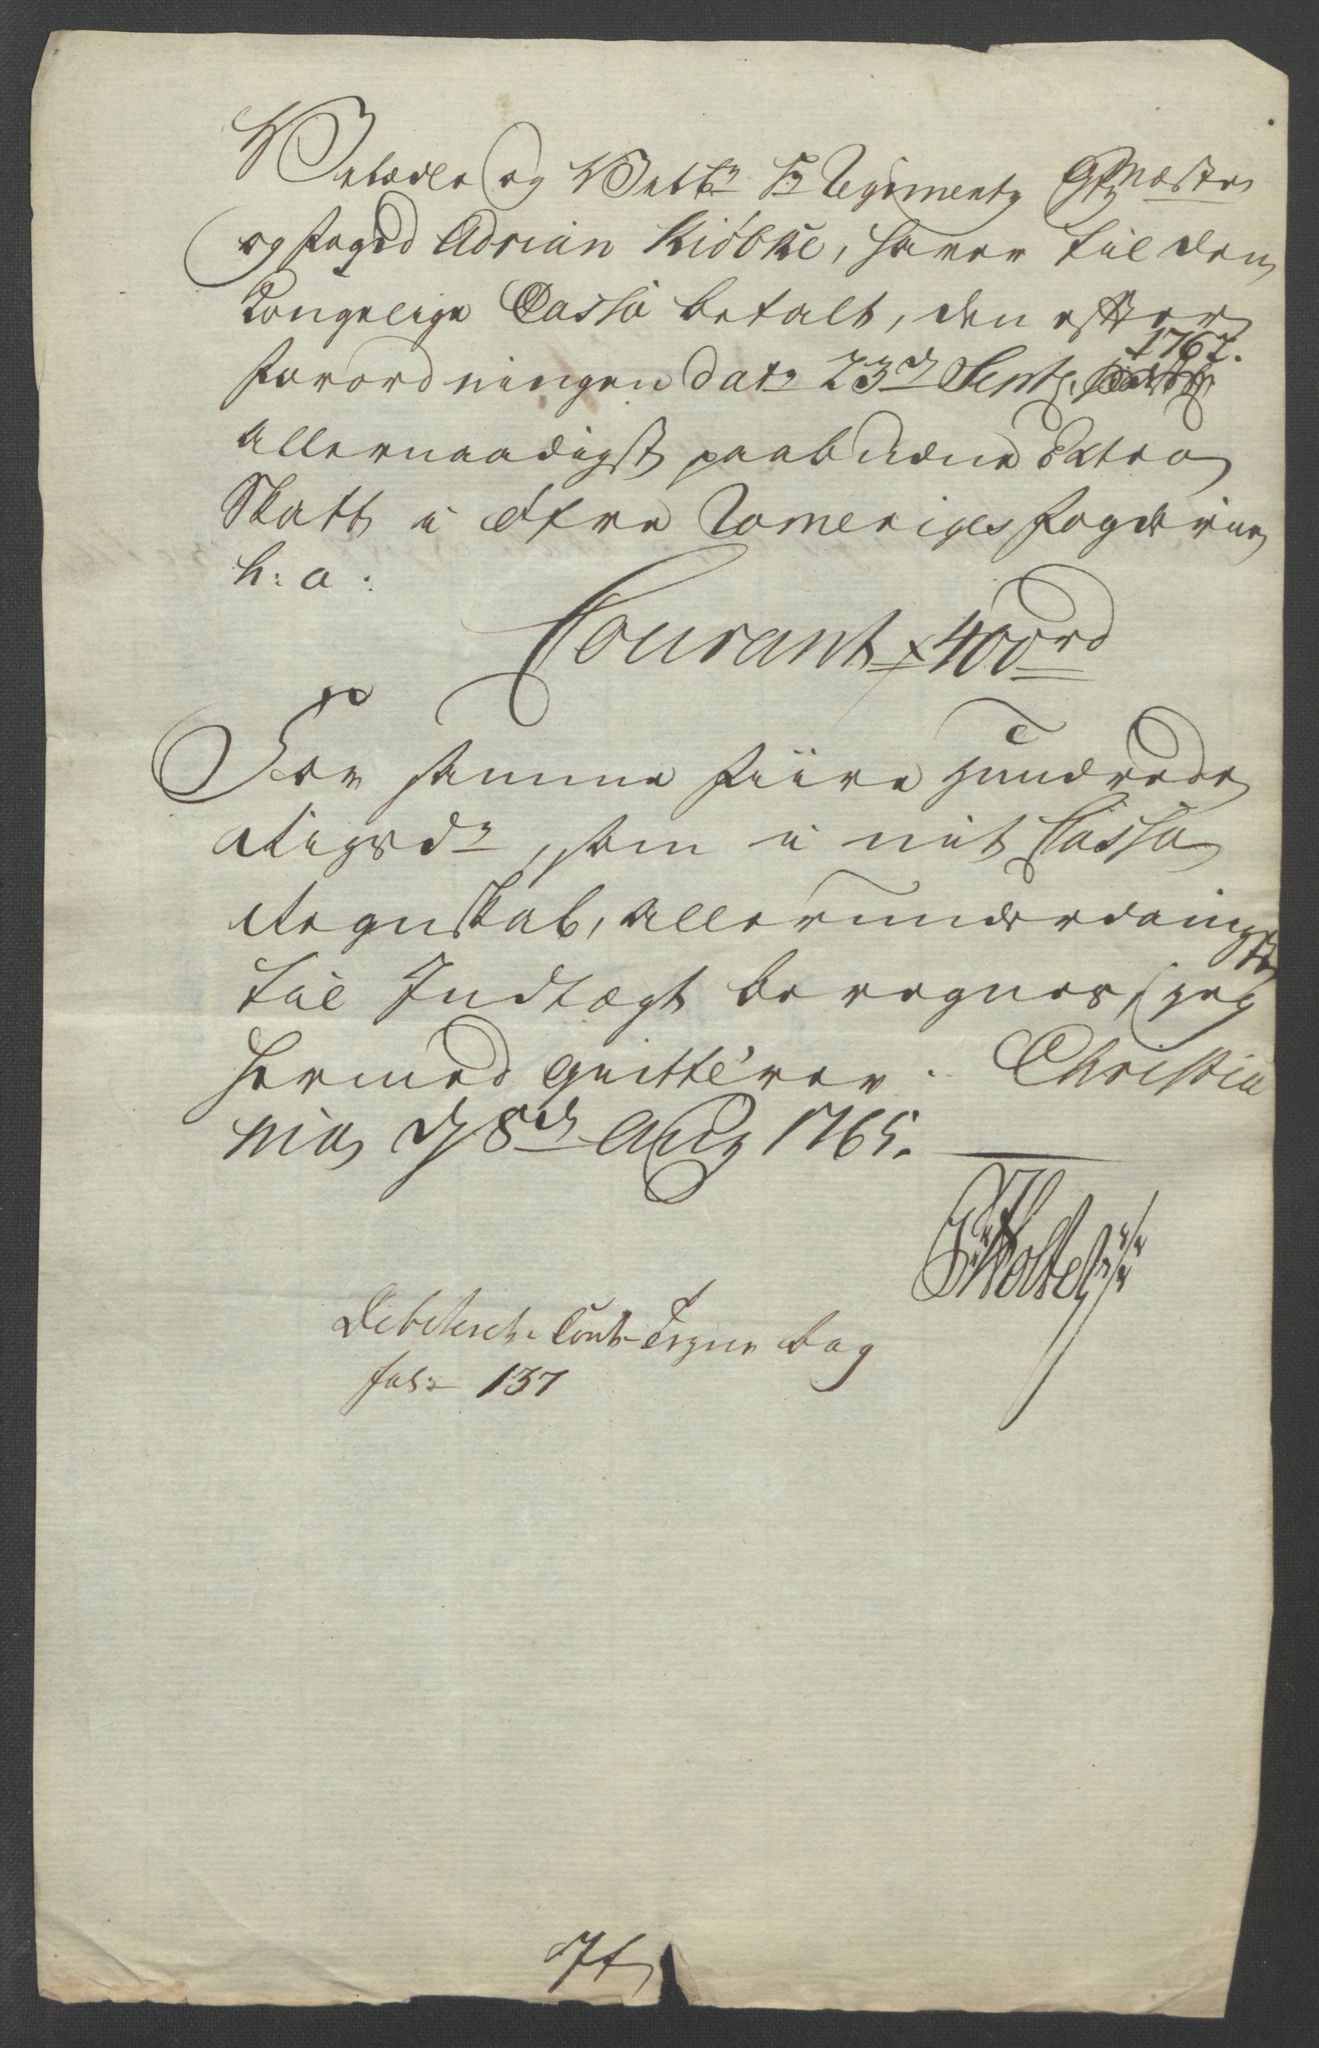 Velædle og Velb: Hr Regiments Qvmester
og Foged Adrian Kiøbke, haver til den
Kongelige Cassa betalt, den efter
Forordningen dat: 23d Sept: 1762.
allernaadigst paabudne Extra
Skatt i Øfre Romeriges Fogderie
h: a:
Courant 400rd
For samme fiire hundrede
Rigsdr, som i mit Cassa
Regnskab, allerunderdanigst
til Indtægt beregnes, jeg
hermed qvitterer. Christia
nia d 8d Aug 1765.
Holter
Debiteret i Cont: Tegne bog
fol: 137